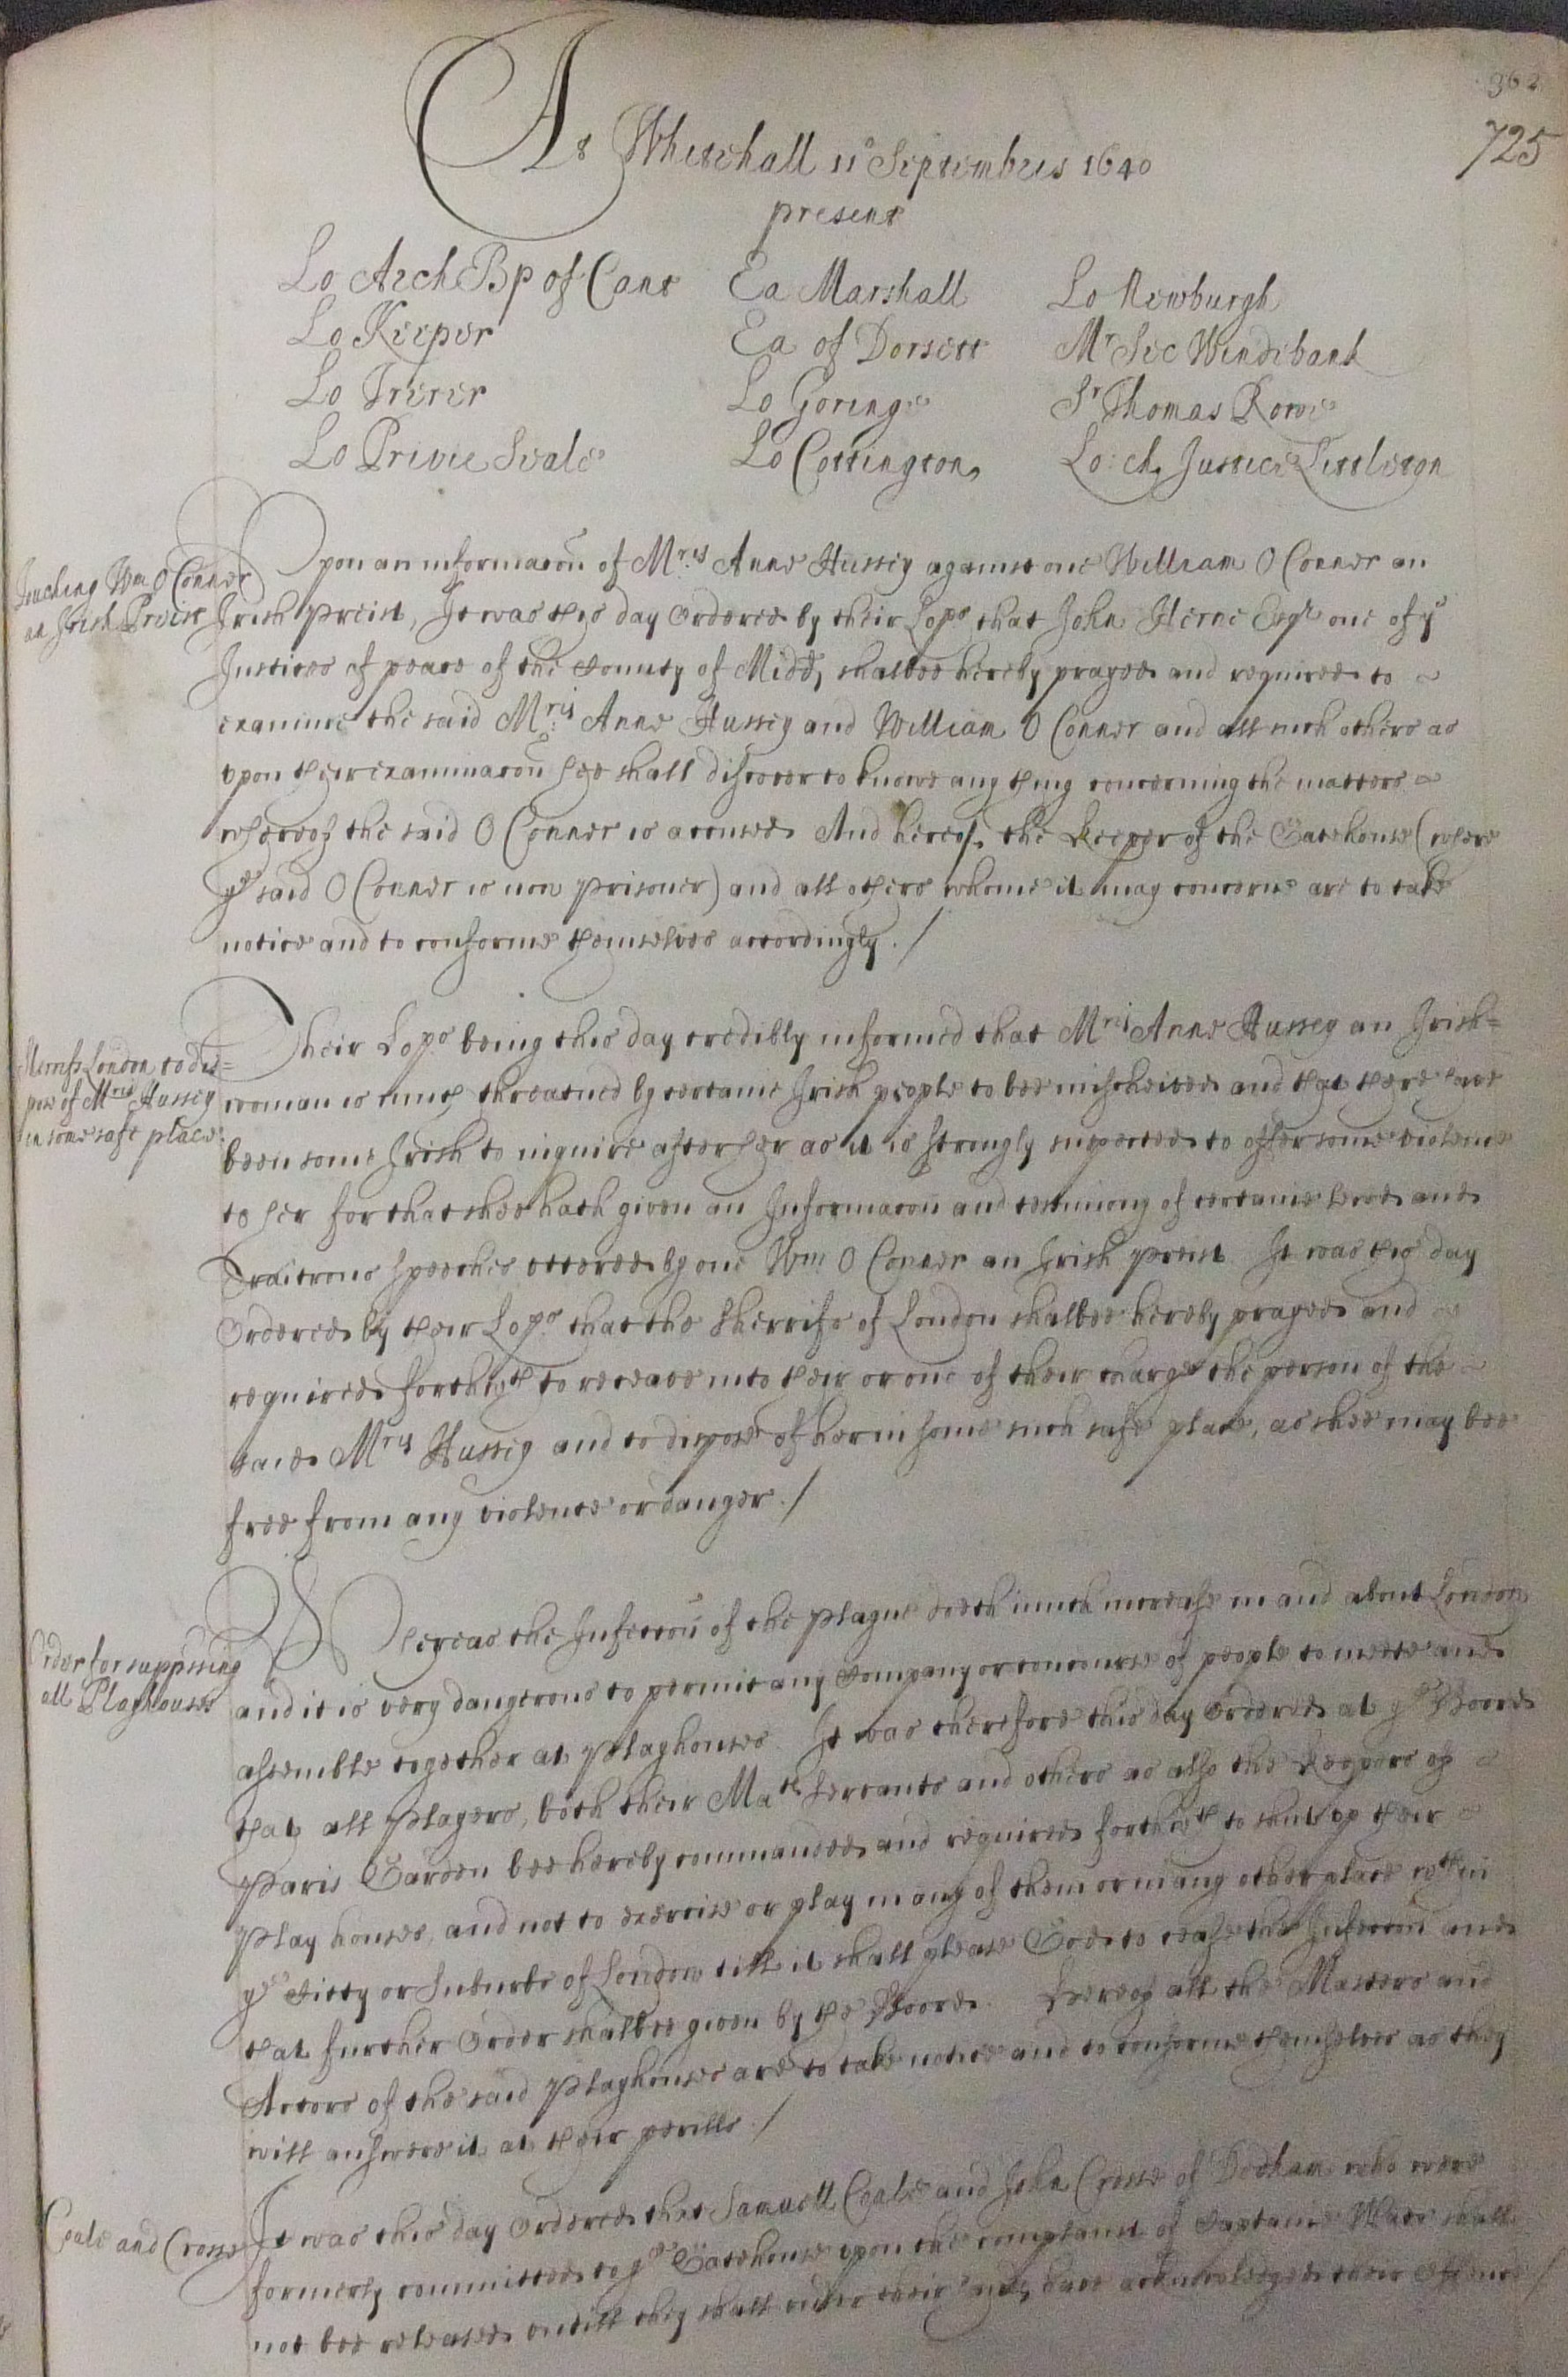 362
725
At Whitehall 11º Septembris 1640
present
Lo Arch Bp of Cant Ea Marshall Lo Newburgh
Lo Keeper Ea of Dorsett Mr Sec Windebank
Lo Trerer Lo Goringe Sr Thomas Rowe
Lo Privie Seale Lo Cottington Lo: ch. Justice Littleton
Touching Wm O Conner
an Irish Preist
Upon an informacon of Mris Anne Hussey against one William O Conner an
Irish preist, It was this day Ordered by their Lopps that John Herne Esqr one of ye
Justices of peace of the County of Midd, shalbee hereby prayed and required to
examine the said Mris Anne Hussey and William O Conner and all such others as
upon their examinacon hee shall discover to knowe any thing concerning the matters
whereof the said O Conner is accused And hereof, the Keeper of the Gatehouse (where
ye said O Conner is now prisoner) and all others whome it may concerne are to take
notice and to conforme themselves accordingly ./
London to dis=
pose of Mris Hussey
in some safe place.
Their Lopps being this day credibly informed that Mris Anne Hussey an Irish=
woman is much threatned by certaine Irish people to bee mischeived and that there have
been some Irish to inquire after her as it is strongly suspected to offer some violence
to her for that shee hath given an Informacon and testimony of certaine lewd and
Traitrous speeches uttered by one Wm O Conner an Irish preist It was this day
Ordered by their Lopps that the Sherrifs of London shalbee hereby prayed and
required forthwth to receave into their or one of their charge the person of the
said Mris Hussey and to dispose of her in some such safe place, as shee may bee
free from any violence or danger ./
Order for suppssing
all Playhouses
Whereas the Infeccon of the plague doeth much increase in and about London
and it is very dangerous to permit any Company or concourse of people to meete and
assemble together at Playhouses It was therefore this day Ordered at ye Boord
that all Players, both their Mats servants and others as also the Keepers of
Paris Garden bee hereby commanded and required forthwth to shut up their
Play houses, and not to exercise or play in any of them or in any other place wthin
ye Citty or Suburbs of London till it shall please God to cease the Infeccon and
that further Order shalbee given by the Boord. Hereof all the Masters and
Actors of the said Playhouses are to take notice and to conforme themselves as they
will answere it at their perills ./
Coale and Crosse
It was this day Ordered that Samuell Coale and John Crosse of Dedham who were
formerly committed to ye Gatehouse upon the complaint of Captaine Waad shall
not bee released untill they shall under their hands have acknowledged their offence /